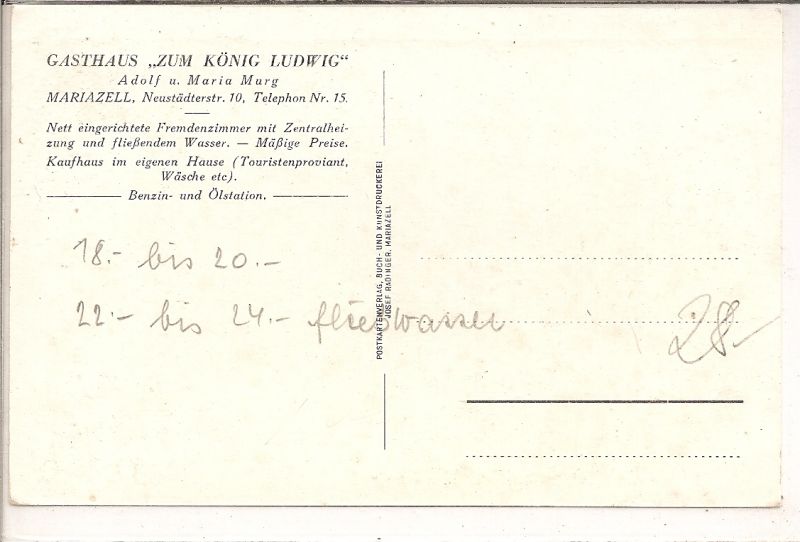 GASTHAUS „ZUM KÖNIG LUDWIG“
Adolf u. Maria Murg
MARIAZELL, Neustädterstr. 10, Telephon Nr. 15.
Nett eingerichtete Fremdenzimmer mit Zentralhei-
zung und fließendem Wasser. — Mäßige Preise.
Kaufhaus im eigenen Hause (Touristenproviant,
Wäsche etc).
Benzin- und Ölstation.
18.- bis 20.-
22.- bis 24.- fließwasser
28.-
POSTKARTENVERLAG, BUCH- UND KUNSTDRUCKEREI
JOSEF RADINGER, MARIAZELL